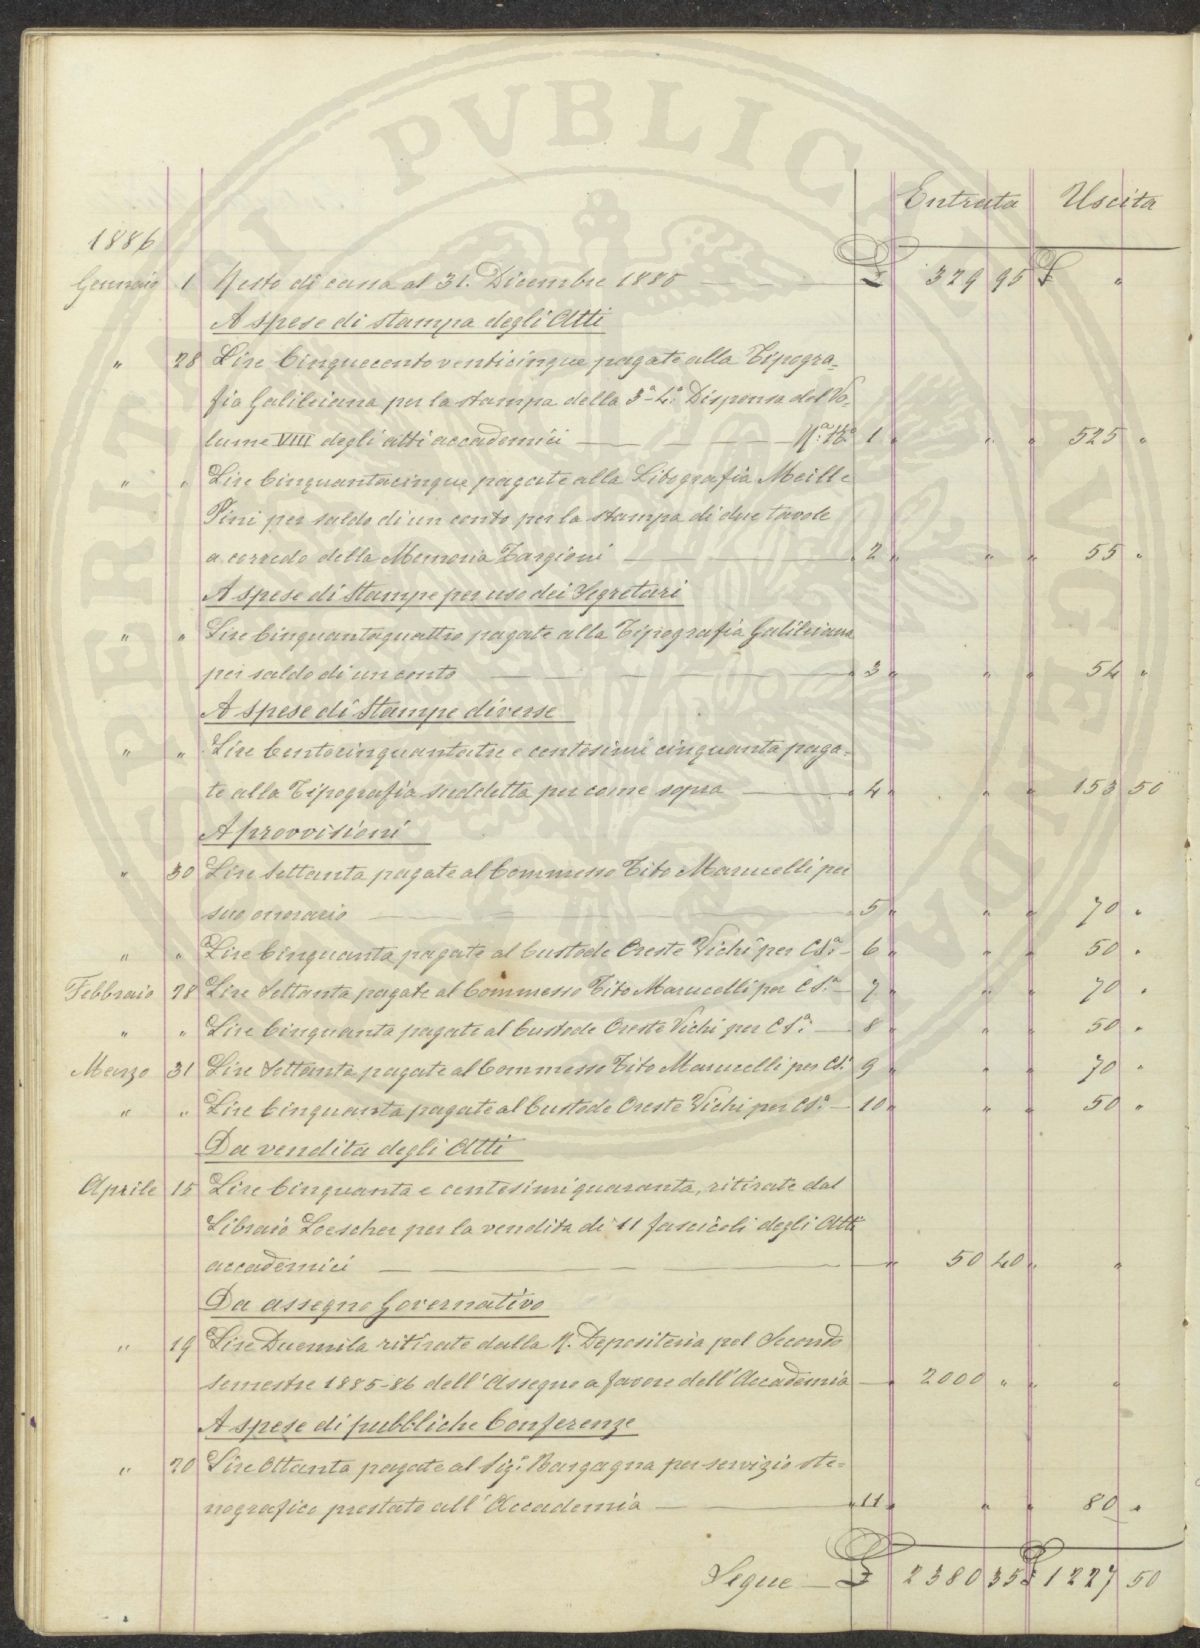 PUBLICAE
Entrata Uscita
1886
Gennaio 1 Resto di cassa al 31. Dicembre 1885 £ 329 95 £ "
A spese di stampa degli Atti
" 28 Lire Cinquecentoventicinque pagate alla Tipogra=
fia Galileiana per la stampa della 3ª-4ª Dispensa del Vo=
lume VIII degli atti accademici 1 " " " 525 "
" " Lire Cinquantacinque pagate alla Litografia Meille
Pini per saldo di un conto per la stampa di due tavole
a corredo della Memoria Targioni " 2 " " " 55 "
A spese di Stampe per uso dei Segretari
" " Lire Cinquantaquattro pagate alla Tipografia Galileiana
per saldo di un conto " 3 " " " 54 "
A spese di Stampe diverse
" " Lire Centocinquantatre e centesimi cinquanta paga=
te alla Tipografia suddetta per come sopra " 4 " " " 153 50
A provvisioni
" 30 Lire Settanta pagate al Commesso Tito Marucelli per
suo onorario " 5 " " " 70 "
" " Lire Cinquanta pagate al Custode Oreste Vichi per Cª Sª 6 " " " 50 "
Febbraio 28 Lire Settanta pagate al Commesso Tito Marucelli per C Sª 7 " " " 70 "
" " Lire Cinquanta pagate al Custode Oreste Vichi per C Sª 8 " " " 50 "
Marzo 31 Lire Settanta pagate al Commesso Tito Marucelli per C Sª 9 " " " 70 "
" " Lire Cinquanta pagate al Custode Oreste Vichi per C Sª 10 " " " 50 "
Da vendita degli Atti
Aprile 15 Lire Cinquanta e centesimi quaranta, ritirate dal
Libraio Loescher per la vendita di 11 fascicoli degli Atti
accademici " 50 40 " "
Da assegno Governativo
" 19 Lire Duemila ritirate dalla R. Depositeria pel Secondo
semestre 1885-86 dell'Assegno a favore dell'Accademia 2000 " " "
A spese di pubbliche Conferenze
" 20 Lire Ottanta pagate al Sigr Bargagna per servizio ste=
nografico prestato all'Accademia " 11 " " " 80 "
Segue £ 2380 35 £ 1227 50